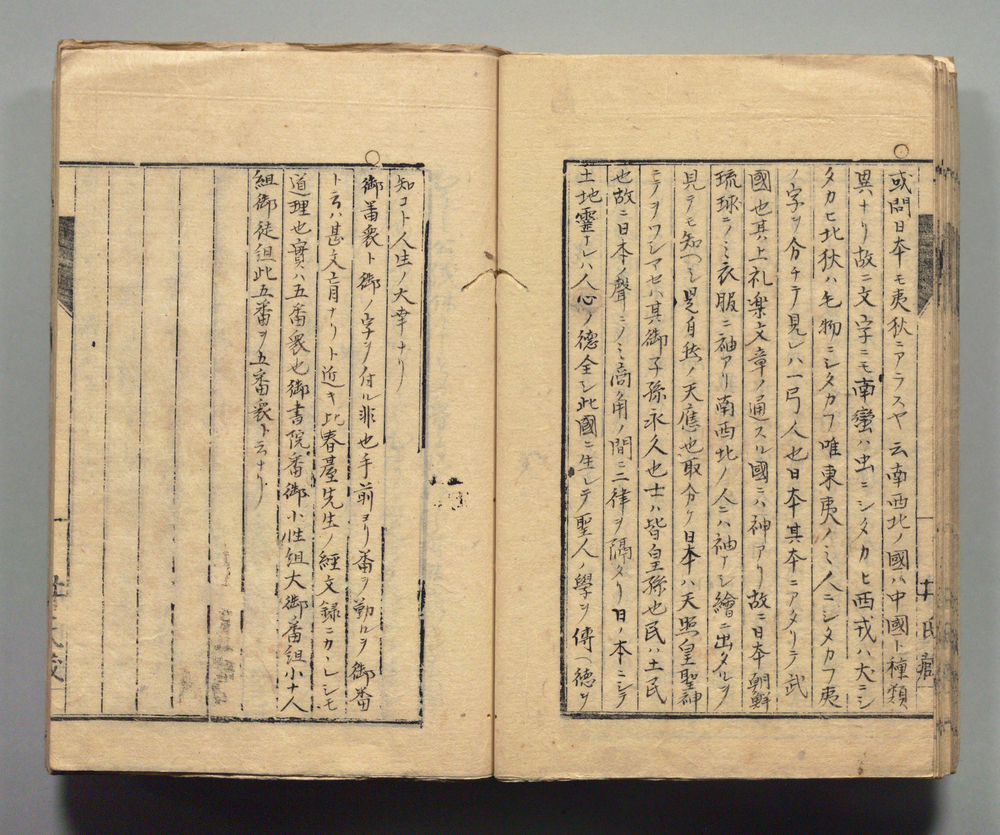 ○
或問日本モ夷狄ニアラスヤ云南西北ノ國ハ中國ト種類
異ナリ故ニ文字ニモ南蠻ハ虫ニシタカヒ西戎ハ犬ニシ
タカヒ北狄ハ ニシタカフ唯東夷ノミ人ニシタカフ夷
ノ字ヲ分チテ見レハ一弓人也日本其本ニアタリテ武
國也其上礼楽文章ノ通スル國ニハ神アリ故ニ日本朝鮮
琉球ニノミ衣服ニ袖アリ南西北ノ人ニハ袖ナシ繪ニ出タルヲ
見テモ知ヘシ是自然ノ天應也取分ケ日本ハ天照皇聖神
ニヲワシマセハ其御子孫永久也士ハ皆皇孫也民ハ土民
也故ニ日本ノ聲ニノミ商角ノ間ニ二律ヲ隔タリ日ノ本ニシテ
土地靈ナレハ人心ノ徳全シ此國ニ生レテ聖人ノ學ヲ傳ヘ徳ヲ
知コト人生ノ大幸ナリ
○
御番衆ト御ノ字ヲ付ル非也手前ヨリ番ヲ勤ルヲ御番
ト云ハ甚文盲ナリト近キ比春臺先生ノ經文録ニカレシモ
道理也實ハ五番衆也御書院番御小性組大御番組小十人
組御徒組此五番ヲ五番衆ト云ナリ